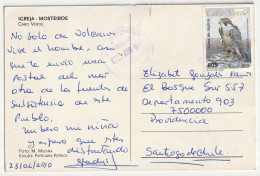 IGREJA - MOSTEIROS
CABO VERDE
No solo de volcanes
vive el hombre, asi
que te envio una
postal del mar
otra de la fuente de
Subsistencia de este
Pueblo.
Un beso mi niña
y espero que estes
disfrutando
23/02/2010
FOTO: M. MEDINA
Cabo Verde
Elizabet Gonzalez
El Bosque Sur 557
Departamento 903
7500000
Providencia
Santiago de Chile.